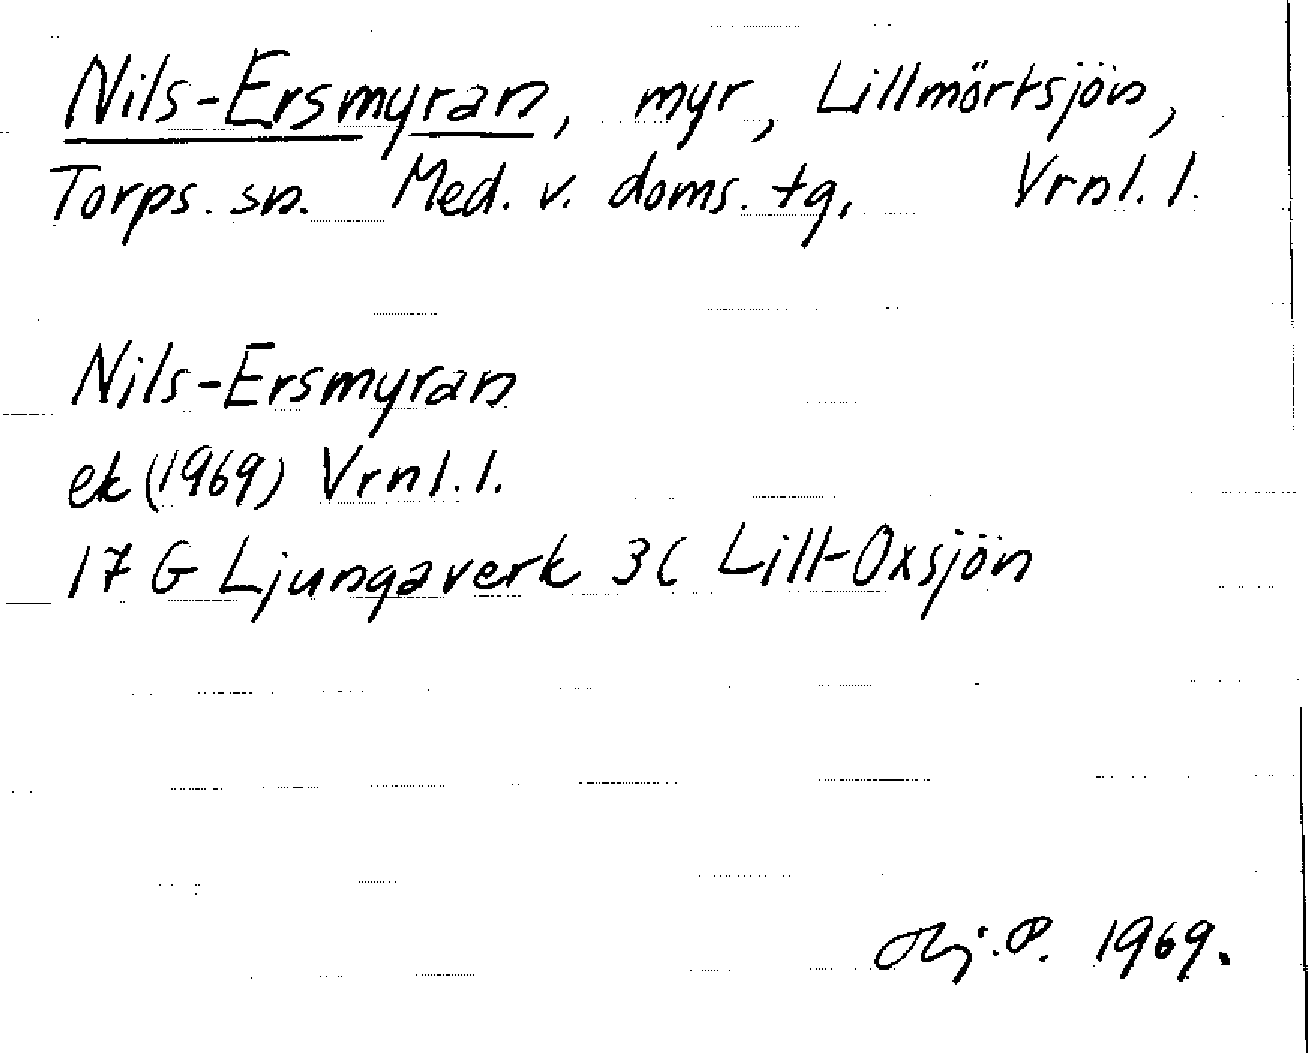 Nils-Ersmyran, myr, Lillmörtsjön,
Torps. sn. Med. v. doms. tg, Vrnl. l.
Nils-Ersmyran
ek (1969) Vrnl. l.
17 G Ljungaverk 3c Lill-Oxsjön
1969.